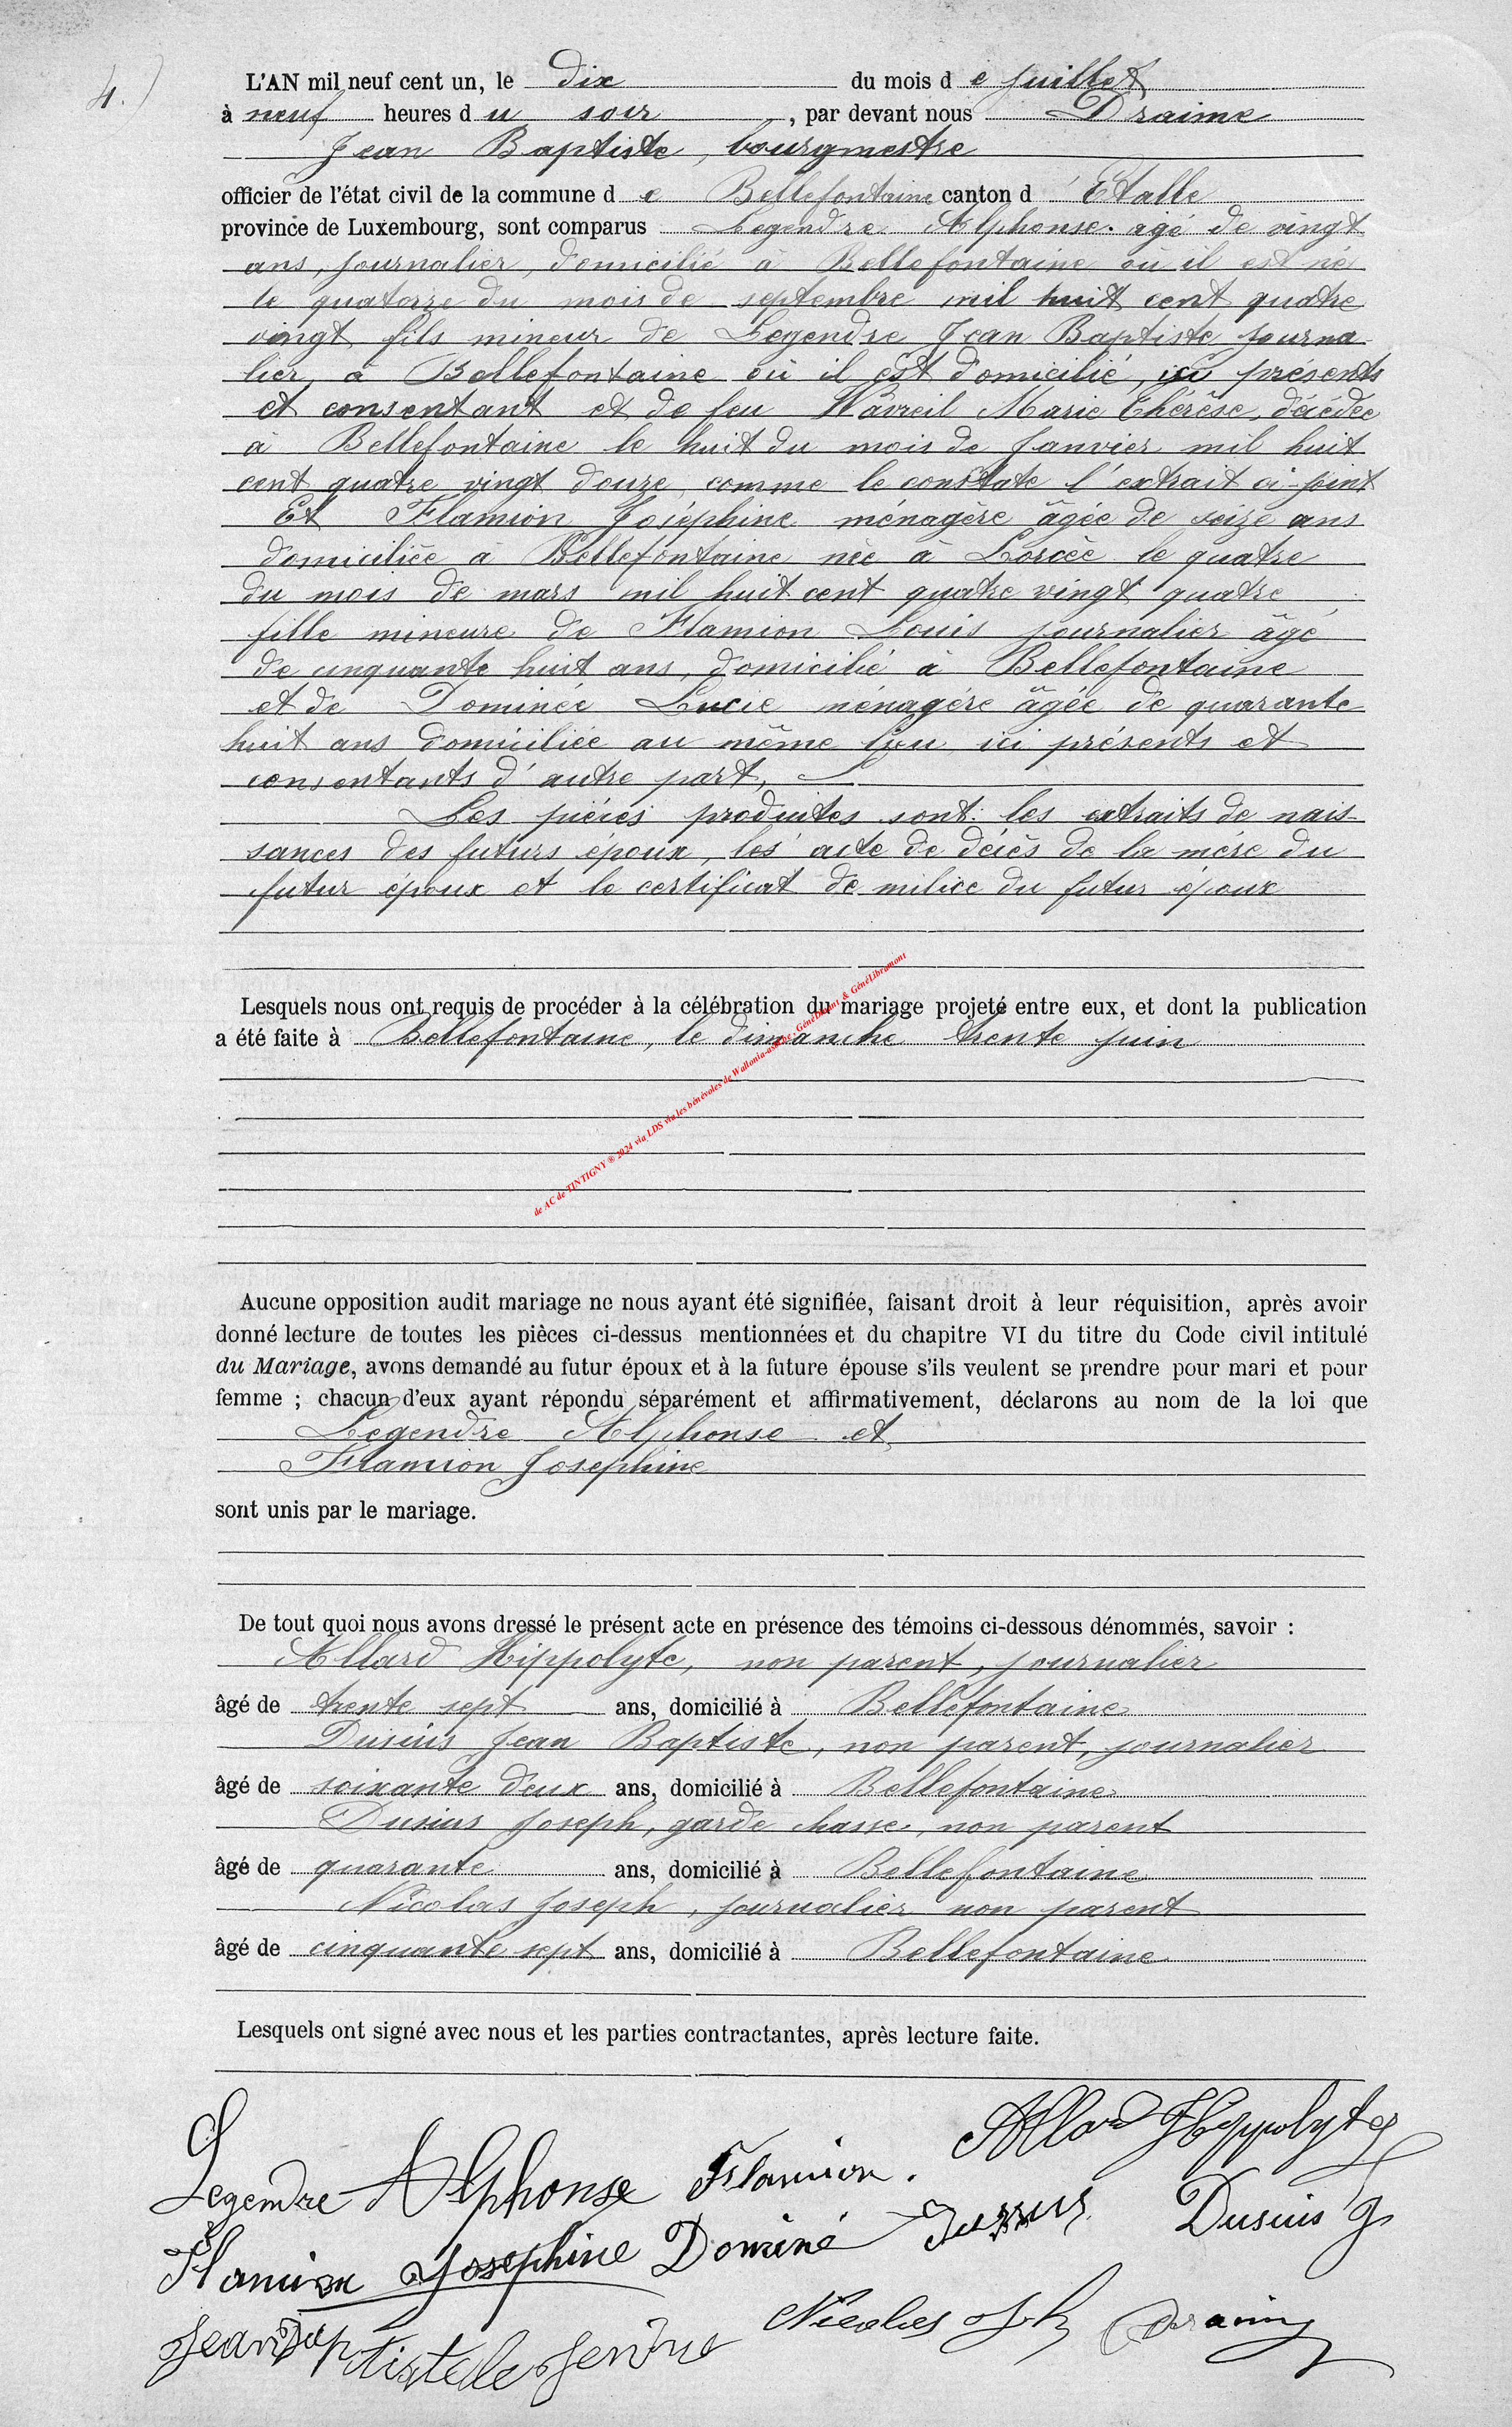 4.)
L'AN mil neuf cent un, le dix du mois d e juillet
à neuf heures d u soir, par devant nous Draime
Jean Baptiste, bourgmestre
officier de l'état civil de la commune d e Bellefontaine canton d' Etalle
province de Luxembourg, sont comparus Legendre Alphonse. agé de vingt
ans, journalier, domicilié à Bellefontaine ou il est né
le quatorze du mois de septembre mil huit cent quatre
vingt, fils mineur de Legendre Jean Baptiste journa
lier, à Bellefontaine où il est domicilié, ici présents
et consentant et de feu Wavreil Marie Thérèse, décédée
à Bellefontaine le huit du mois de Janvier mil huit
cent quatre vingt douze, comme le constate l'extrait ci-joint
Et Flamion Joséphine ménagère âgée de seize ans
domiciliée à Bellefontaine née à Lorcée le quatre
du mois de mars mil huit cent quatre vingt quatre,
fille mineure de Flamion Louis journalier âgé
de cinquante huit ans, domicilié à Bellefontaine
et de Dominée Lucie ménagère âgée de quarante
huit ans domiciliée au même lieu ici présents et
consentants d'autre part,
Les pièces produites sont: les extraits de nais-
sances des futurs époux, les acte de décès de la mère du
futur époux et le certificat de milice du futur époux
Lesquels nous ont requis de procéder à la célébration du mariage projeté entre eux, et dont la publication
a été faite à Bellefontaine, le dimanche trente juin
de AC de TINTIGNY ® 2024 via LDS via les bénévoles de Wallonia-asbl be, GénéDinant & GénéLibramont
Aucune opposition audit mariage ne nous ayant été signifiée, faisant droit à leur réquisition, après avoir
donné lecture de toutes les pièces ci-dessus mentionnées et du chapitre VI du titre du Code civil intitulé
du Mariage, avons demandé au futur époux et à la future épouse s'ils veulent se prendre pour mari et pour
femme ; chacun d'eux ayant répondu séparément et affirmativement, déclarons au nom de la loi que
Legendre Alphonse et
Flamion Josephine
sont unis par le mariage.
De tout quoi nous avons dressé le présent acte en présence des témoins ci-dessous dénommés, savoir :
Allard Hippolyte, non parent, journalier
âgé de trente sept ans, domicilié à Bellefontaine
Dusius Jean Baptiste, non parent, journalier
âgé de soixante deux ans, domicilié à Bellefontaine
Dusius Joseph, garde chasse, non parent
âgé de quarante ans, domicilié à Bellefontaine
Nicolas Joseph, journalier non parent
âgé de cinquante sept ans, domicilié à Bellefontaine
Lesquels ont signé avec nous et les parties contractantes, après lecture faite.
Allard Hyppolyte
Legendre Alphonse Flamion.
Flamion Josephine Dominé Dusius J
Nicolas Jh Draime
Jean Baptiste le Jendre